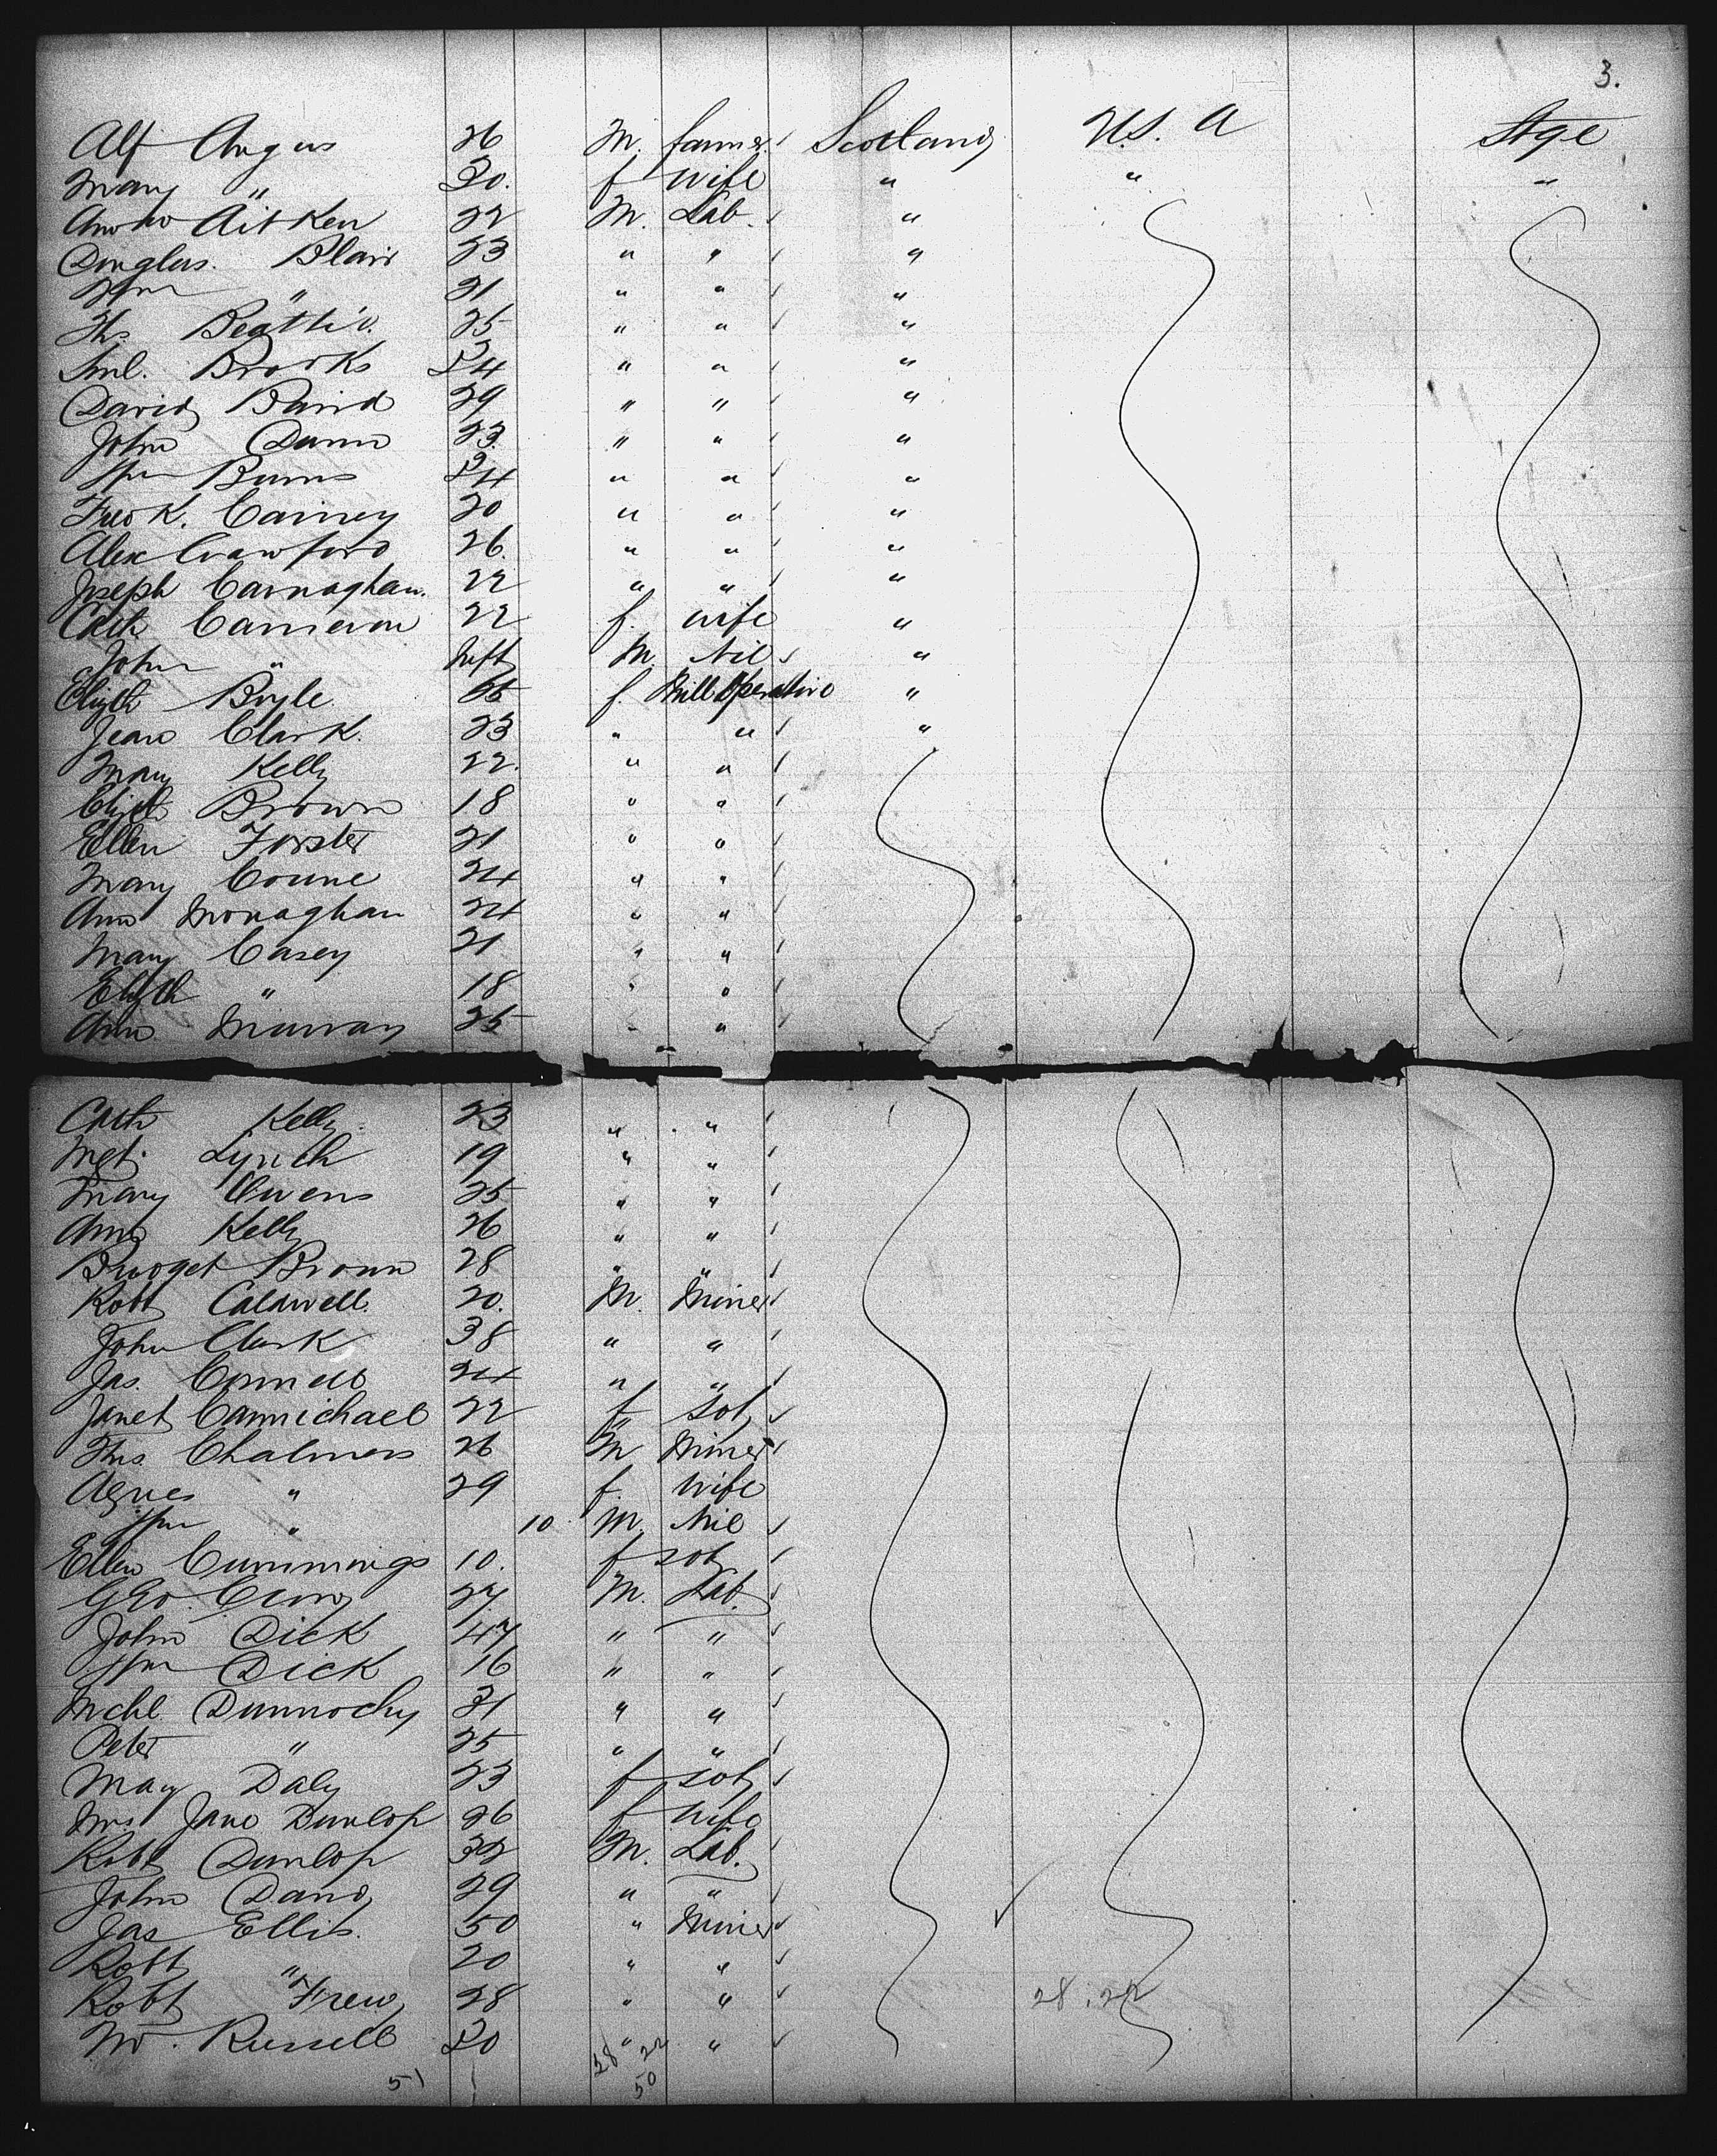 3.
Alf Angus 26 M. farmer Scotland U.S. A Stge
Mary " 20. f wife " " "
Andw Aitken 22 M. Lab. "
Douglas. Blair 23 " " "
Wm " 21 " " "
Ths Beattie. 25 " " "
Saml. Brooks 24 " " "
David Baird 29 " " "
John Dunn 23. " " "
Wm Burns 24 " " "
Fredk. Cairney 20 " " "
Alex Crawford 26. " " "
Joseph Carnaghan. 22 " " "
Cath Cameron 22 f. wife "
John " Inft M. Nil "
Elizth Boyle 25 f. Mill Operative "
Jean Clark. 23 " " "
Mary Kelly 22. " "
Elizth Brown 18 " "
Ellen Forster 21 " "
Mary Coune 24 " "
Ann Monaghan 24 " "
Mary Casey 21 " "
Elizth " 18 " "
Ann Murray 25 " "
Cath Kelly 23 " "
Mgt. Lynch 19 " "
Mary Owens 25 " "
Ann Kelly 26 " "
Bridget Brown 28 " "
Robt Caldwell 20. M. Miner
John Clark 38 " "
Jas. Connell 24 " "
Janet Carmichael 22 f Sot
Ths. Chalmers 26 M Miner
Agnes " 29 f. wife
Wm " 10 M. Nil
Ellen Cummings 10. f sot
Geo. 27 M. Lab.
John Dick 47 " "
Wm Dick 16 " "
Mchl Dunnochy 31 " "
Peter " 25 " "
Mary Daly 23 f sot
Mrs. Jane Dunlop 26 f wife
Robt Dunlop 32 M. Lab.
John David 29 " "
Jas Ellis. 50 " Miner
Robt " 20 " "
Robt Frew 28 " " 28 . 22
W. Russell 20 " "
51 28 22
50